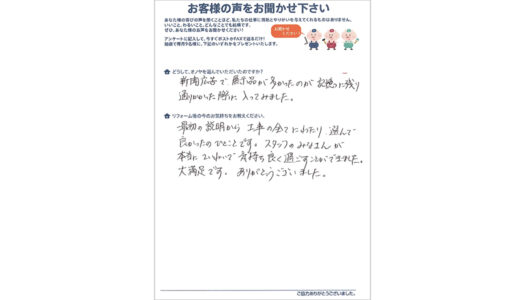 お客様の声をお聞かせ下さい
あなた様の喜びの声を聞くことほど、私たちの仕事に情熱とやりがいを与えてくれるものはありません。
いいこと、わるいこと、どんなことでも結構です。
ぜひ、あなた様のお声をお聞かせください!
アンケートに記入して、今すぐポストかFAXで送るだけ!!
抽選で毎月9名様に、下記のいずれかをプレゼントいたします。
お聞かせ
ください!
どうして、オノヤを選んでいただいたのですか?
新聞広告で展示品が多かったのが記憶に残り
通りかかった際に入ってみました。
リフォーム後の今のお気持ちをお教えください。
最初の説明から工事の全てにわたり選んで
良かったのひとことです。スタッフのみなさんが
本当にていねいで気持ち良く過ごすことができました。
大満足です。ありがとうございました。
ご協力ありがとうございました。